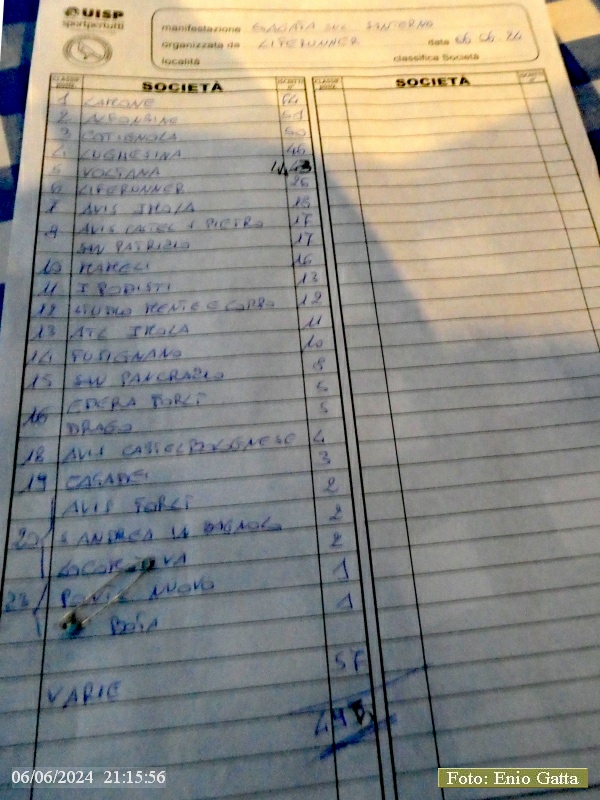 UISP
sportpertutti
manifestazione SAGATA SUL SANTERNO
organizzata da LIFERUNNER data 06 06 24
località classifica Società
SOCIETÀ SOCIETÀ
1 LAMONE 54
2 ALFONSINE 51
3 COTIGNOLA 50
4 LUGHESINA 46
5 VOLTANA 43
6 LIFERUNNER 25
7 AVIS IMOLA 18
8 AVIS CASTEL S PIETRO 17
SAN PATRIZIO 17
10 MAMELI 16
11 I PODISTI 13
12 STUDIO MENTE E CORPO 12
13 ATL IMOLA 11
14 FUSIGNANO 10
15 SAN PANCRAZIO 8
16 EDERA FORLI 5
DRAGO 5
18 AVIS CASTELBOLOGNESE 4
19 CASADEI 3
AVIS FORLI 2
20 S ANDREA IN BAGNOLO 2
LOCOMOTIVA 2
23 PONTE NUOVO 1
BOSA 1
VARIE 57
06/06/2024 21:15:56
Foto: Enio Gatta